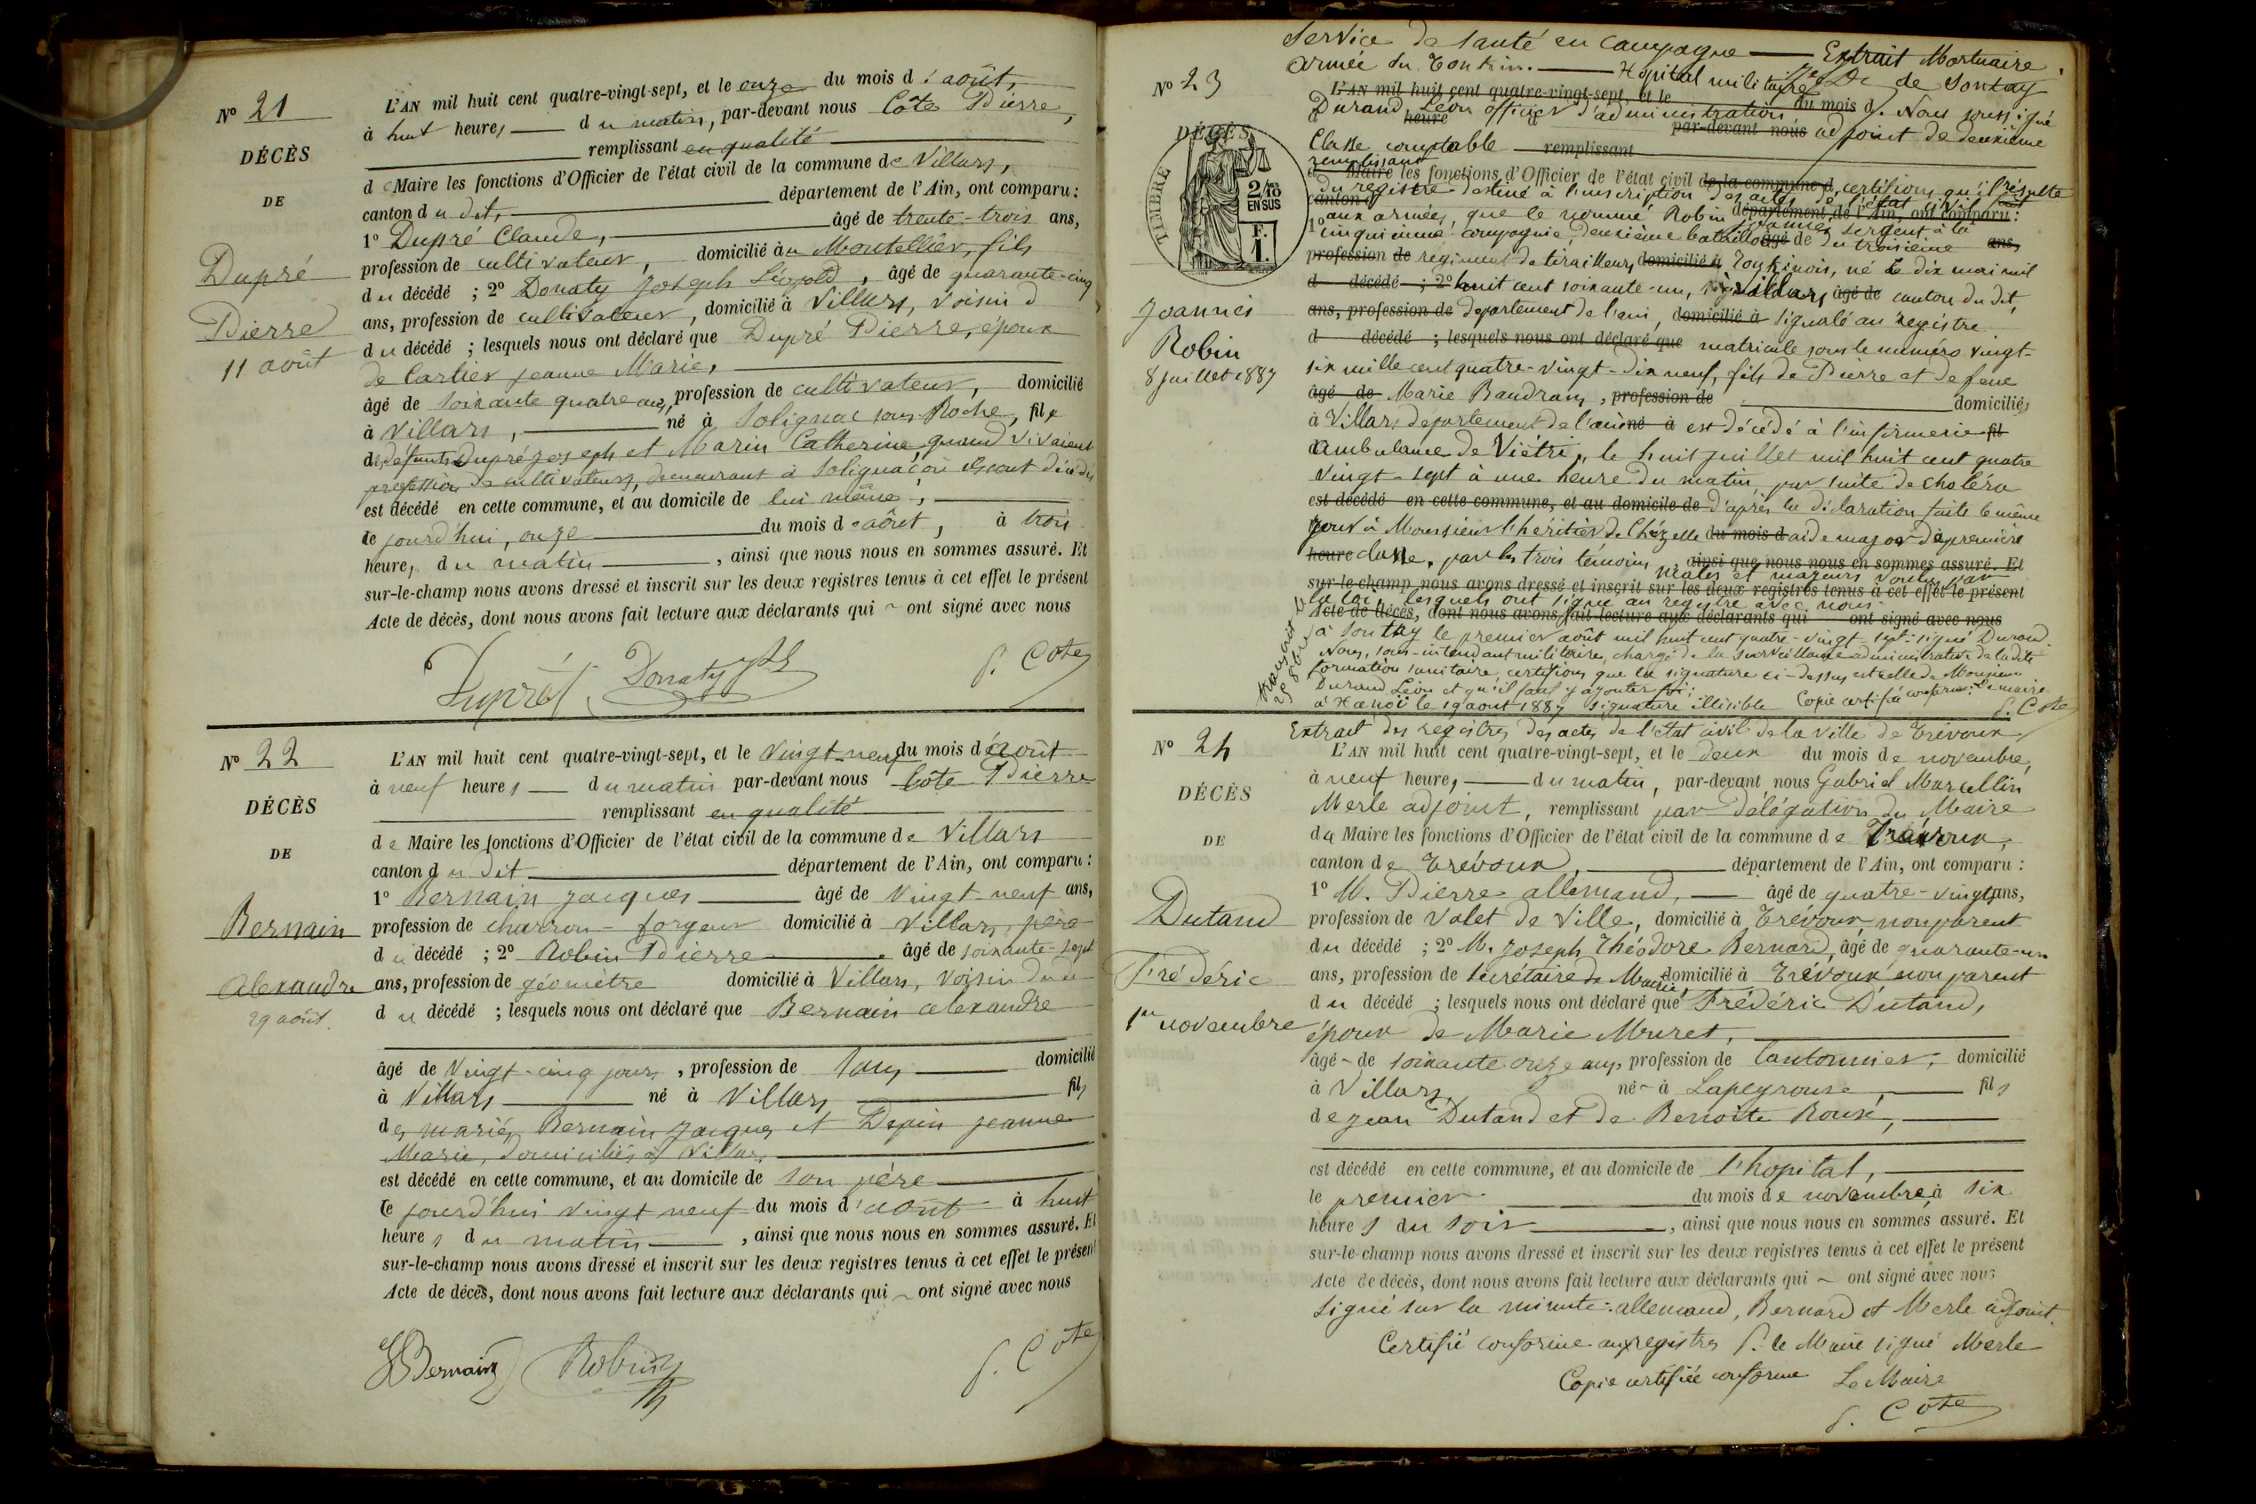 N° 21
DÉCÈS
DE
Dupré
Pierre
11 août
L'AN mil huit cent quatre-vingt-sept, et le onze du mois d'août,
à huit heures du matin, par-devant nous Côte Pierre,
remplissant en qualité
de Maire les fonctions d'Officier de l'état civil de la commune de Villars,
canton du dit, département de l'Ain, ont comparu :
1° Dupré Claude, âgé de trente-trois ans,
profession de cultivateur, domicilié au Montellier, fils
du décédé ; 2° Donaty Joseph Léopold, âgé de quarante-cinq
ans, profession de cultivateur, domicilié à Villars, voisin d
du décédé ; lesquels nous ont déclaré que Dupré Pierre, époux
de Carlier jeanne Marie,
âgé de soixante quatre ans, profession de cultivateur, domicilié
à Villars, né à Solignac sous Roche, fils
des défunts Dupré joseph et Marin Catherine, quand vivaient
profession de cultivateurs, demeurant à Solignac où ils sont décédés
est décédé en cette commune, et au domicile de lui même,
le jourd'hui, onze du mois d'août, à trois
heures du matin, ainsi que nous nous en sommes assuré. Et
sur-le-champ nous avons dressé et inscrit sur les deux registres tenus à cet effet le présent
Acte de décès, dont nous avons fait lecture aux déclarants qui ~ ont signé avec nous
Dupré Donaty P. Cote
N° 22
DÉCÈS
DE
Bernain
Alexandre
29 août.
L'AN mil huit cent quatre-vingt-sept, et le vingt-neuf du mois d'août
à neuf heures du matin par-devant nous Côte Pierre
remplissant en qualité
de Maire les fonctions d'Officier de l'état civil de la commune de Villars
canton du dit département de l'Ain, ont comparu :
1° Bernain jacques âgé de vingt-neuf ans,
profession de charron-forgeur domicilié à Villars, père
du décédé ; 2° Robin Pierre âgé de soixante-sept
ans, profession de géomètre domicilié à Villars, voisin du
du décédé ; lesquels nous ont déclaré que Bernain alexandre
âgé de vingt-cinq jours, profession de sans domicilié
à Villars né à Villars fils
des mariés Bernain jacques et Depin jeanne
Marie, domiciliés à Villars.
est décédé en cette commune, et au domicile de son père
le jourd'hui vingt neuf du mois d'août à huit
heures du matin, ainsi que nous nous en sommes assuré. Et
sur-le-champ nous avons dressé et inscrit sur les deux registres tenus à cet effet le présent
Acte de décès, dont nous avons fait lecture aux déclarants qui ~ ont signé avec nous
Bernain Robin P. Cote
N° 23
DÉCÈS
TIMBRE
2/10 EN SUS
F. 1.
Joannès
Robin
8 juillet 1887
Service de santé en campagne — Extrait Mortuaire.
Armée du Tonkin. — Hôpital militaire de Sontay
L'AN mil huit cent quatre-vingt-sept, et le du mois d. Nous soussigné
Durand, Léon officier d'administration heure par-devant nous adjoint de deuxième
Classe comptable remplissant
remplissant
de Maire les fonctions d'Officier de l'état civil de la commune d, certifions qu'il résulte
du registre destiné à l'inscription des actes de l'état civil canton d
aux armées, que le nommé Robin département de l'Ain, ont comparu :
Joannès sergent à la
1° cinquième compagnie, deuxième bataillon âgé de du troisième ans,
profession de régiment de tirailleurs domicilié à Tonkinois, né le dix mai mil
d décédé ; 2° huit cent soixante-un, à Villars âgé de canton du dit,
ans, profession de département de l'ain, domicilié à signalé au registre
d décédé ; lesquels nous ont déclaré que matricule sous le numéro vingt-
six mille cent quatre-vingt-dix neuf, fils de Pierre et de feue
âgé de Marie Baudrany, profession de domiciliés
à Villars département de l'ain né à est décédé à l'infirmerie fil
ambulance de Viétri, le huit juillet mil huit cent quatre
vingt-sept à une heure du matin, par suite de choléra
est décédé en cette commune, et au domicile de d'après la déclaration faite le même
jour à Monsieur l'héritier de Chézelle du mois d aide major de première
heure classe, par les trois témoins ainsi que nous nous en sommes assuré. Et
mâles et majeurs voulus par
sur-le-champ nous avons dressé et inscrit sur les deux registres tenus à cet effet le présent
la loi, lesquels ont signé au registre avec nous
Acte de décès, dont nous avons fait lecture aux déclarants qui ont signé avec nous
à Sontay le premier août mil huit cent quatre-vingt-sept. signé Durand
Nous, sous-intendant militaire, chargé de la surveillance administrative de la dite
formation sanitaire, certifions que la signature ci-dessus est celle de Monsieur
Durand Léon et qu'il faut y ajouter foi.
à Hanoï le 19 août 1887 signature illisible Copie certifiée conforme. Le maire
P. Cote
N° 24
DÉCÈS
DE
Dutand
Frédéric
1er novembre
Extrait des registres des actes de l'état civil de la ville de Trévoux
L'AN mil huit cent quatre-vingt-sept, et le deux du mois de novembre,
à neuf heures, du matin, par-devant nous Gabriel Marcellin
Merle adjoint, remplissant par délégation du Maire
du Maire les fonctions d'Officier de l'état civil de la commune de Trévoux,
canton de Trévoux, département de l'Ain, ont comparu :
1° M. Pierre allemand, âgé de quatre-vingts ans,
profession de Valet de Ville, domicilié à Trévoux non parent
du décédé ; 2° M. Joseph Théodore Bernard, âgé de quarante-un
ans, profession de Secrétaire de Mairie, domicilié à Trévoux non parent
du décédé ; lesquels nous ont déclaré que Frédéric Dutand,
époux de Marie Muret,
âgé de soixante onze ans, profession de Cantonnier, domicilié
à Villars, né à Lapeyrouse, fils
de jean Dutand et de Benoite Roux,
est décédé en cette commune, et au domicile de l'hopital,
le premier du mois de novembre, à six
heures du soir, ainsi que nous nous en sommes assuré. Et
sur-le-champ nous avons dressé et inscrit sur les deux registres tenus à cet effet le présent
Acte de décès, dont nous avons fait lecture aux déclarants qui ~ ont signé avec nous
Signé sur la minute : allemand, Bernard et Merle adjoint.
Certifié conforme aux registres P. le Maire signé Merle
Copie certifiée conforme Le Maire
P. Cote